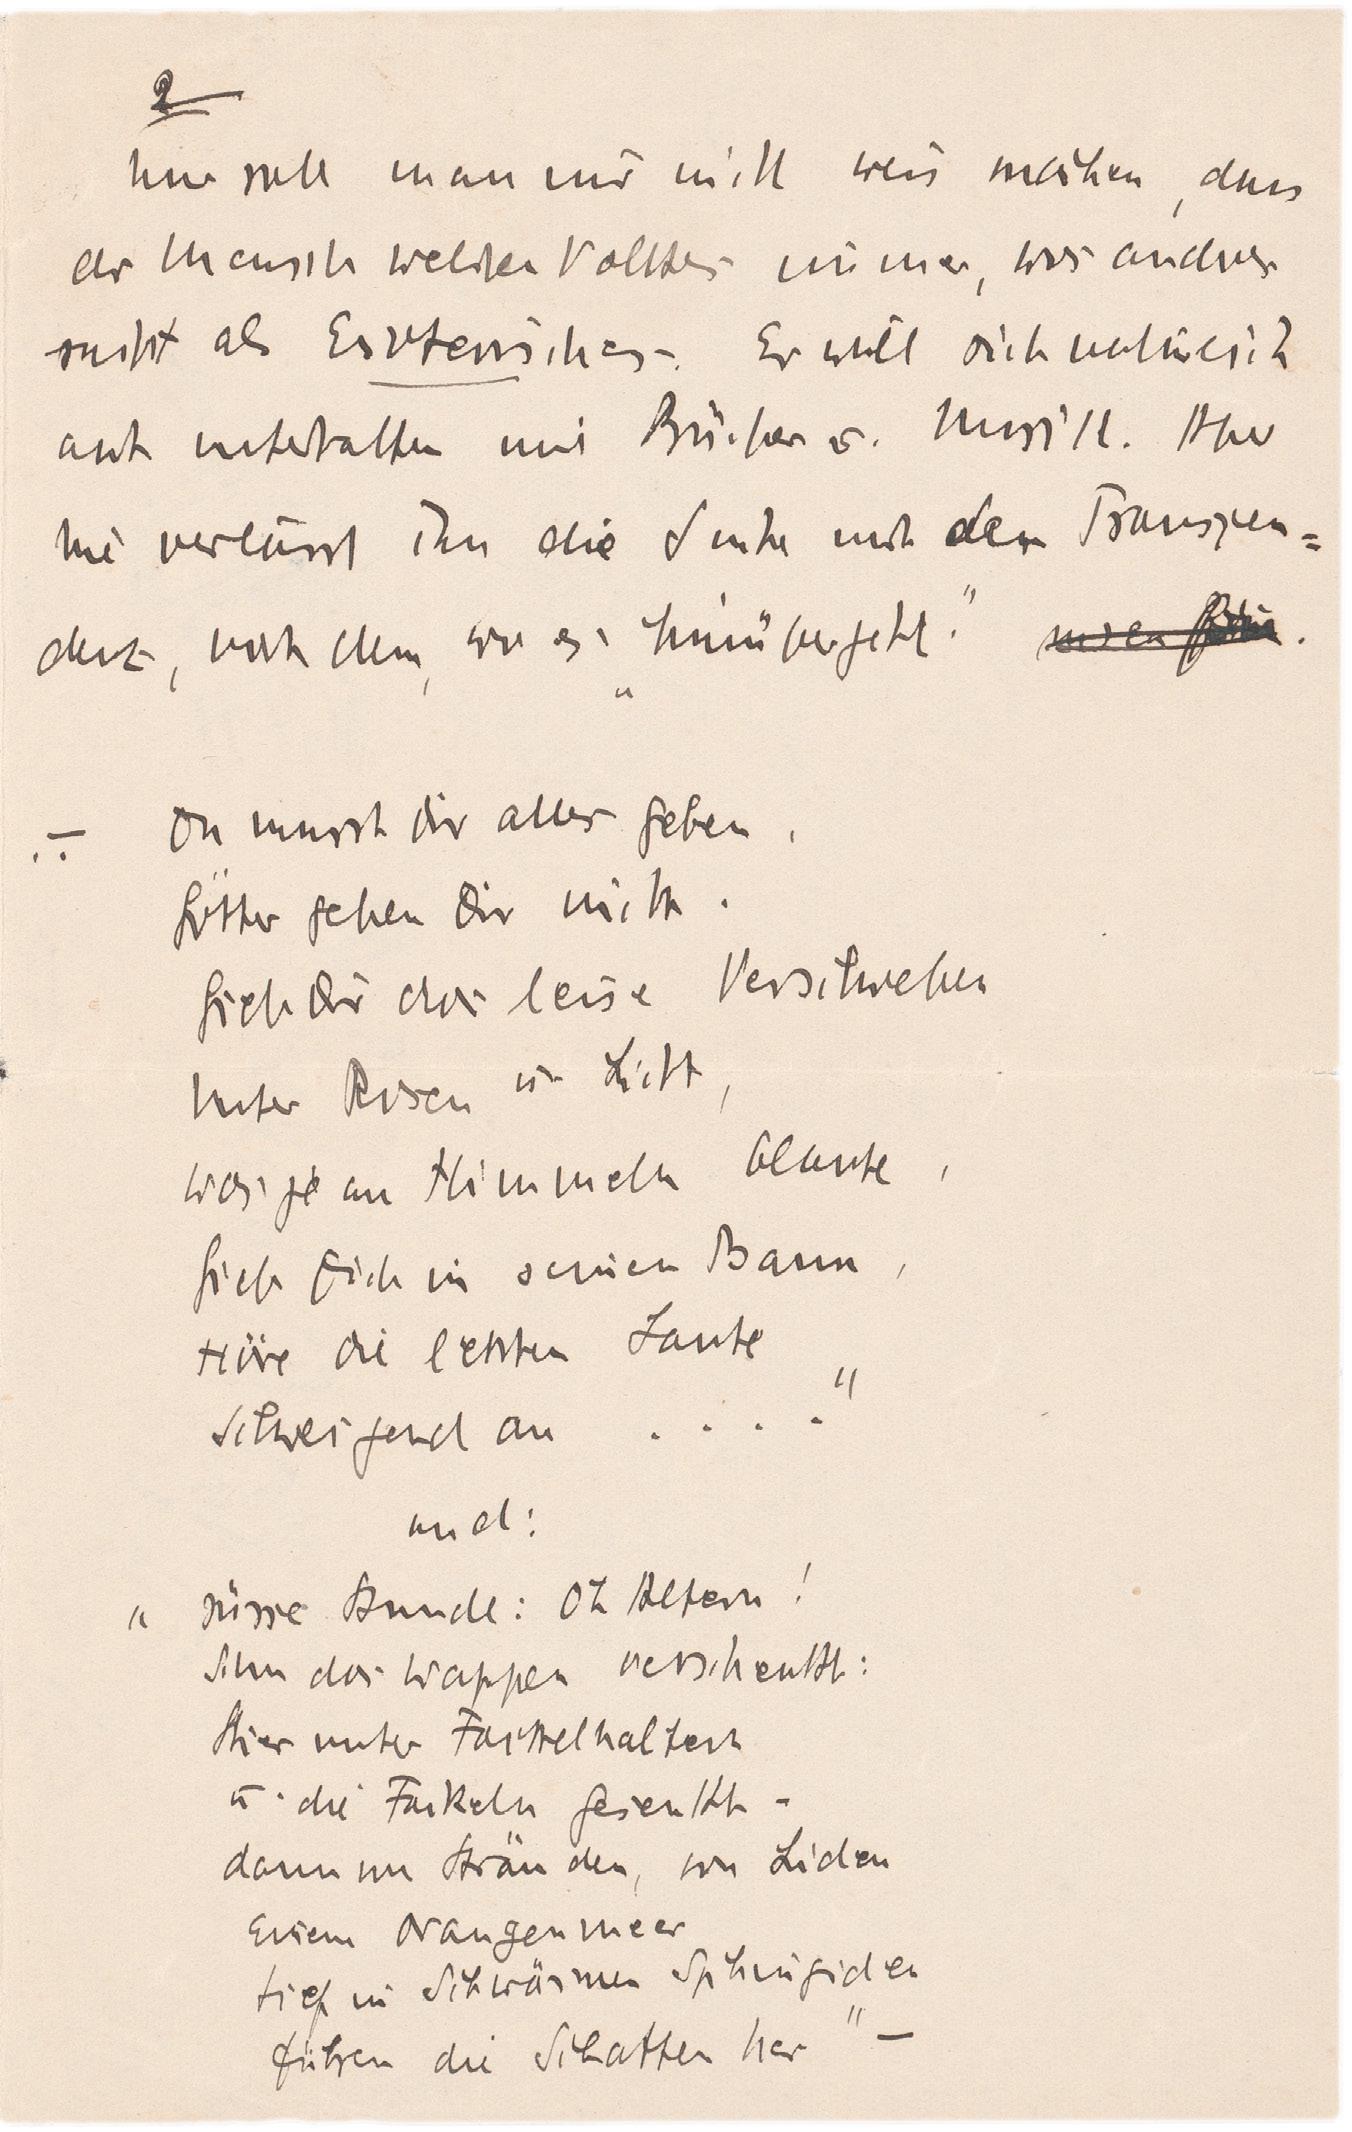 2
Nun soll man mir nicht weis machen, dass
der Mensch welchen Volkes immer, was andres
sucht als Esoterisches. Er will sich natürlich
auch unterhalten mit Bücher u. Musik. Aber
nie verlässt ihn die Suche nach dem Transzen=
denz, nach dem, wo es „hinübergeht".
Du musst Dir alles geben,
Götter geben Dir nicht.
Gieb Dir das leise Verschweben
Unter Rosen u Licht,
was je an Himmeln blaute,
Gieb Dich in seinen Bann,
Höre die letzten Laute
Schweigend an . . . ."
und:
„ süsse Stunde: Oh Altern!
Schon das Wappen verschenkt:
Stier unter Fackelhaltern
u. die Fackeln gesenkt –
dann Stränden, von Liden
Einem Orangenmeer
tief in Schwärmen Sphingiden
führen die Schatten her" –